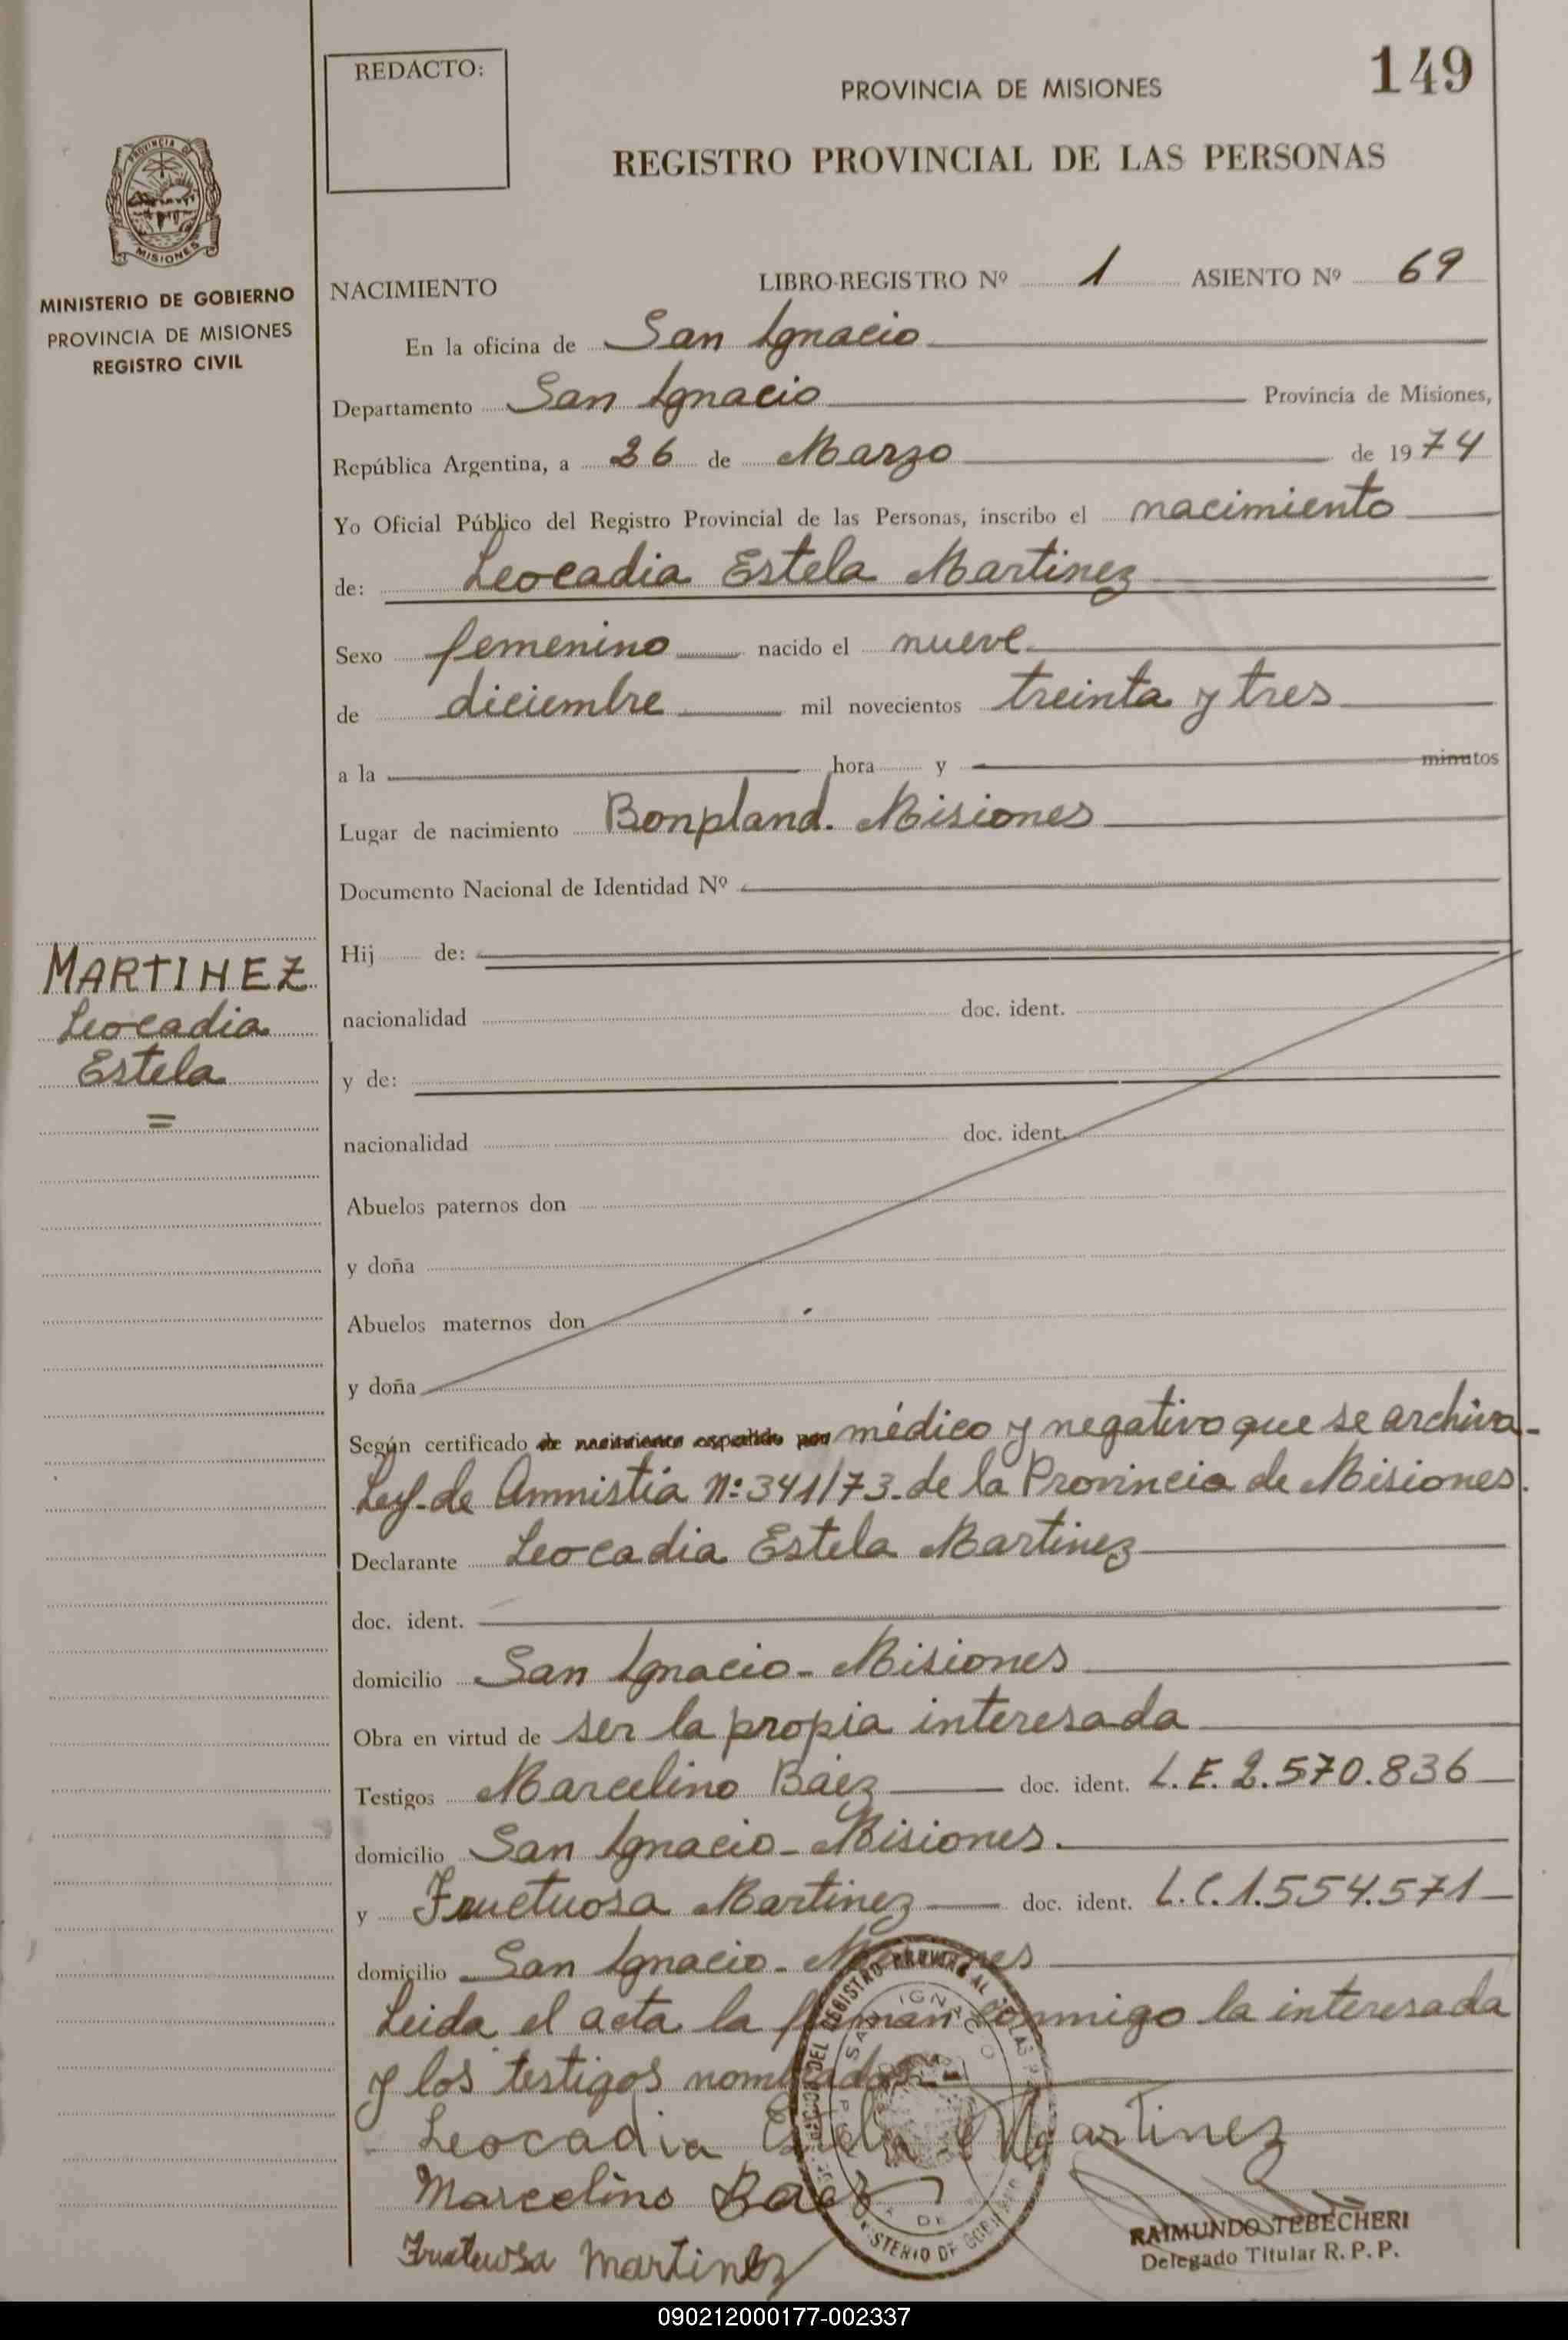 REDACTO:
149
PROVINCIA DE MISIONES
REGISTRO PROVINCIAL DE LAS PERSONAS
PROVINCIA DE
MISIONES
MINISTERIO DE GOBIERNO
PROVINCIA DE MISIONES
REGISTRO CIVIL
NACIMIENTO LIBRO-REGISTRO Nº 1 ASIENTO Nº 69
En la oficina de San Ignacio
Departamento San Ignacio Provincia de Misiones,
República Argentina, a 26 de Marzo de 1974
Yo Oficial Público del Registro Provincial de las Personas, inscribo el nacimiento
de: Leocadia Estela Martinez
Sexo femenino nacido el nueve
de diciembre mil novecientos treinta y tres
a la hora y minutos
Lugar de nacimiento Bonpland. Misiones
Documento Nacional de Identidad Nº
MARTINEZ
Leocadia
Estela
=
Hij de:
nacionalidad doc. ident.
y de:
nacionalidad doc. ident.
Abuelos paternos don
y doña
Abuelos maternos don
y doña
Según certificado de nacimiento expedido por médico y negativo que se archiva-
Ley de Amnistia Nº 341/73. de la Provincia de Misiones.
Declarante Leocadia Estela Martinez
doc. ident.
domicilio San Ignacio - Misiones
Obra en virtud de ser la propia interesada
Testigos Marcelino Báez doc. ident. L.E. 2.570.836
domicilio San Ignacio - Misiones.
y Fructuosa Martinez doc. ident. L.C. 1.554.571
domicilio San Ignacio - Misiones
Leida el acta la firman conmigo la interesada
y los testigos nombrados
Leocadia Estela Martinez
Marcelino Baez
Fructuosa Martinez
RAIMUNDO TEBECHERI
Delegado Titular R. P. P.
090212000177-002337